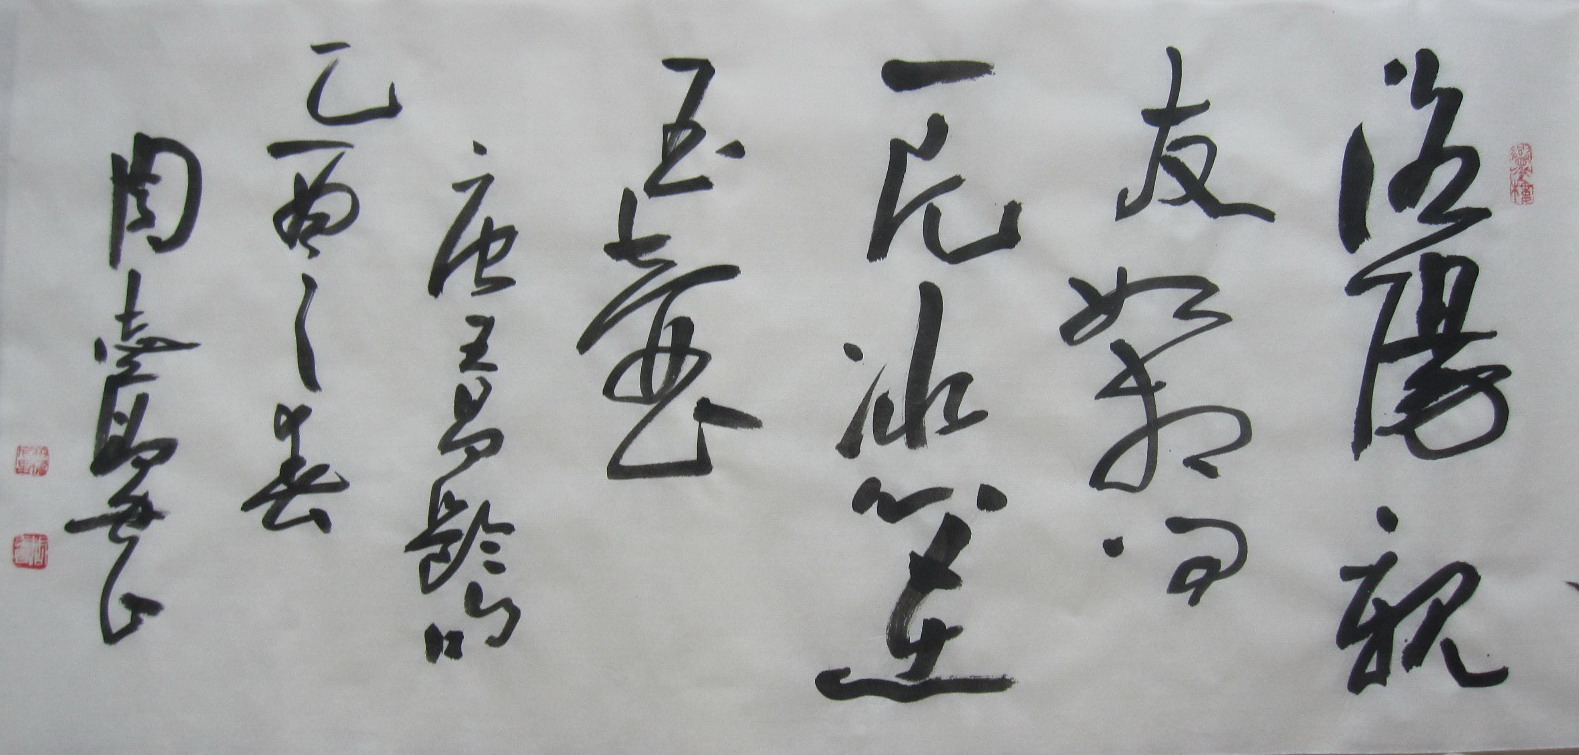 洛陽親
友如相問
一片冰心在
玉壺
唐王昌齡句
乙酉之春
周志高